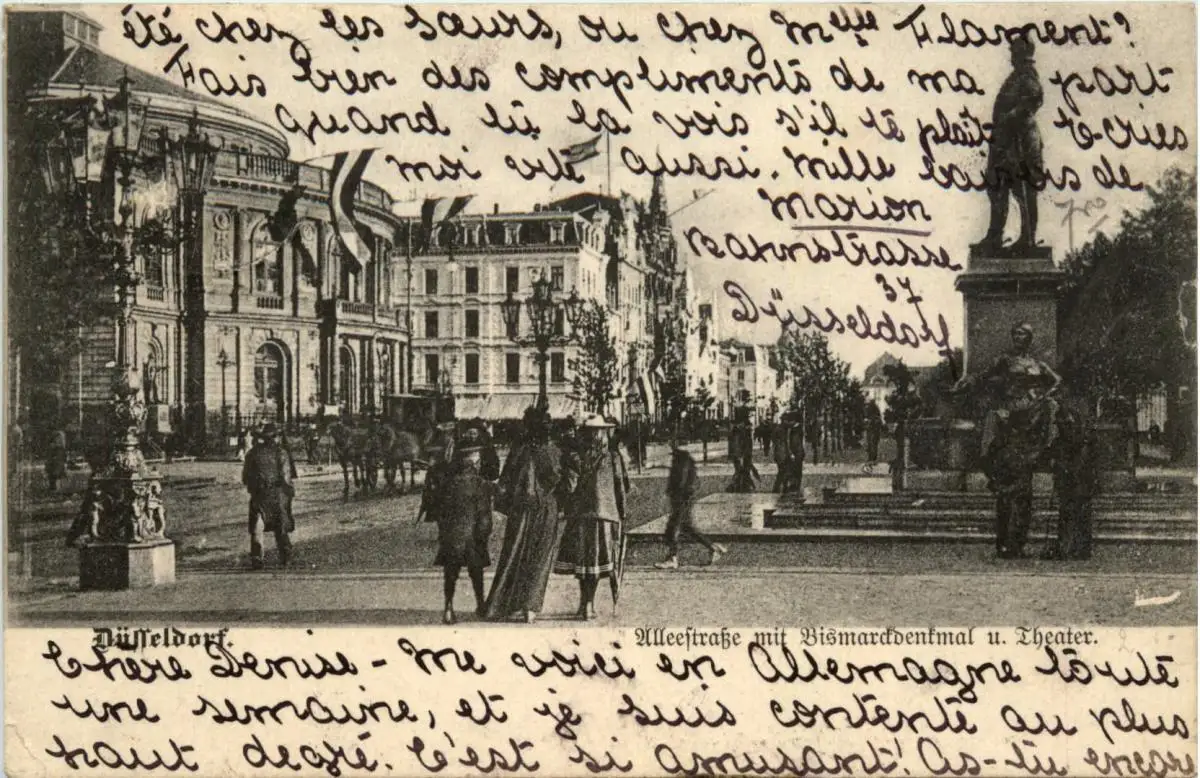 été chez les Sœurs, ou chez Melle Flament?
Fais bien des compliments de ma part
quand tu la vois s'il te plaît. Ecris
moi vite aussi. Mille baisers de
Marion
Bahnstrasse
37
Düsseldorf
Düsseldorf.
Alleestraße mit Bismarckdenkmal u. Theater.
Chère Denise - Me voici en Allemagne toute
une semaine, et je suis contente au plus
haut degré. C'est si amusant! As-tu encore